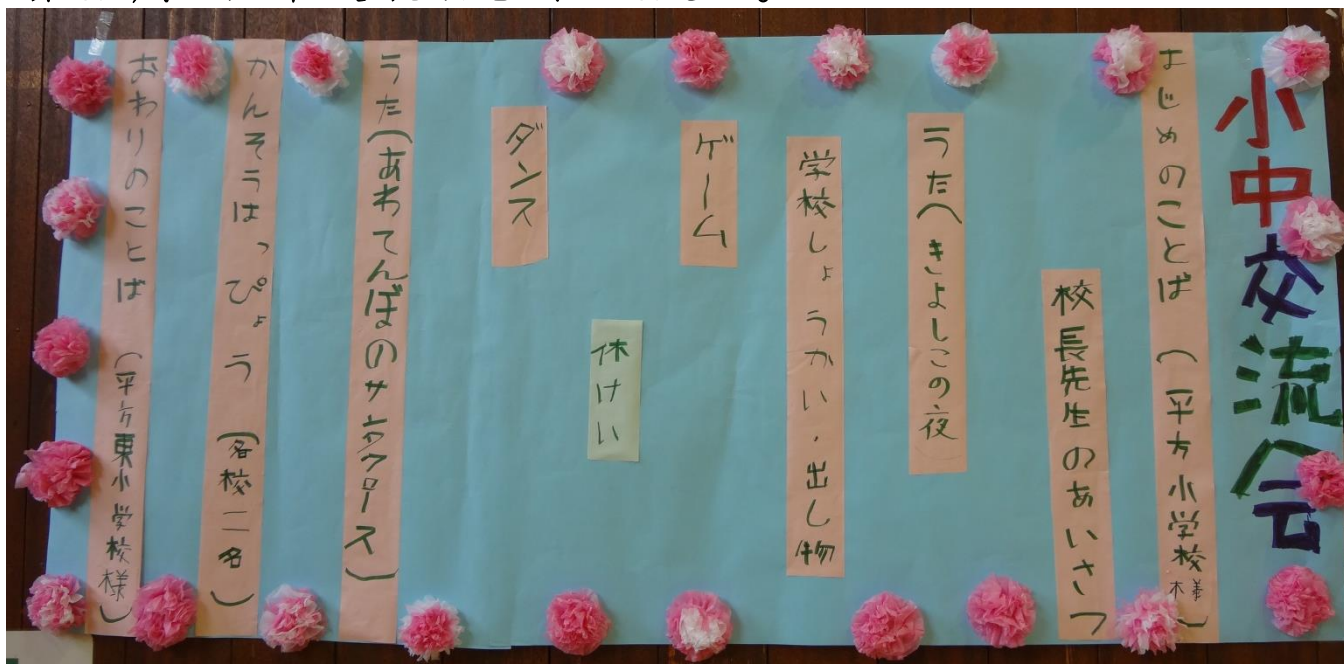 小中交流会
はじめのことば (平方小学校様)
校長先生のあいさつ
うた(きよしこの夜)
学校しょうかい・出し物
ゲーム
休けい
ダンス
うた(あわてんぼのサンタクロース)
かんそうはっぴょう (各校二名)
おわりのことば (平方東小学校様)